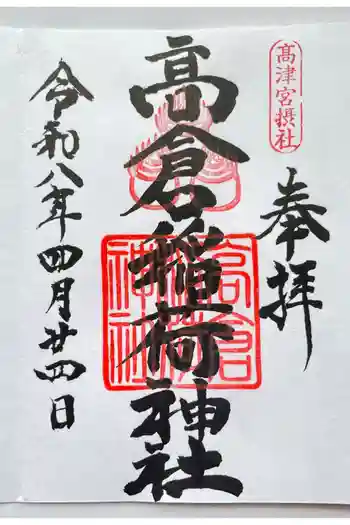 髙津宮摂社
奉拝
高倉稲荷神社
高倉稲荷神社
令和八年四月廿四日